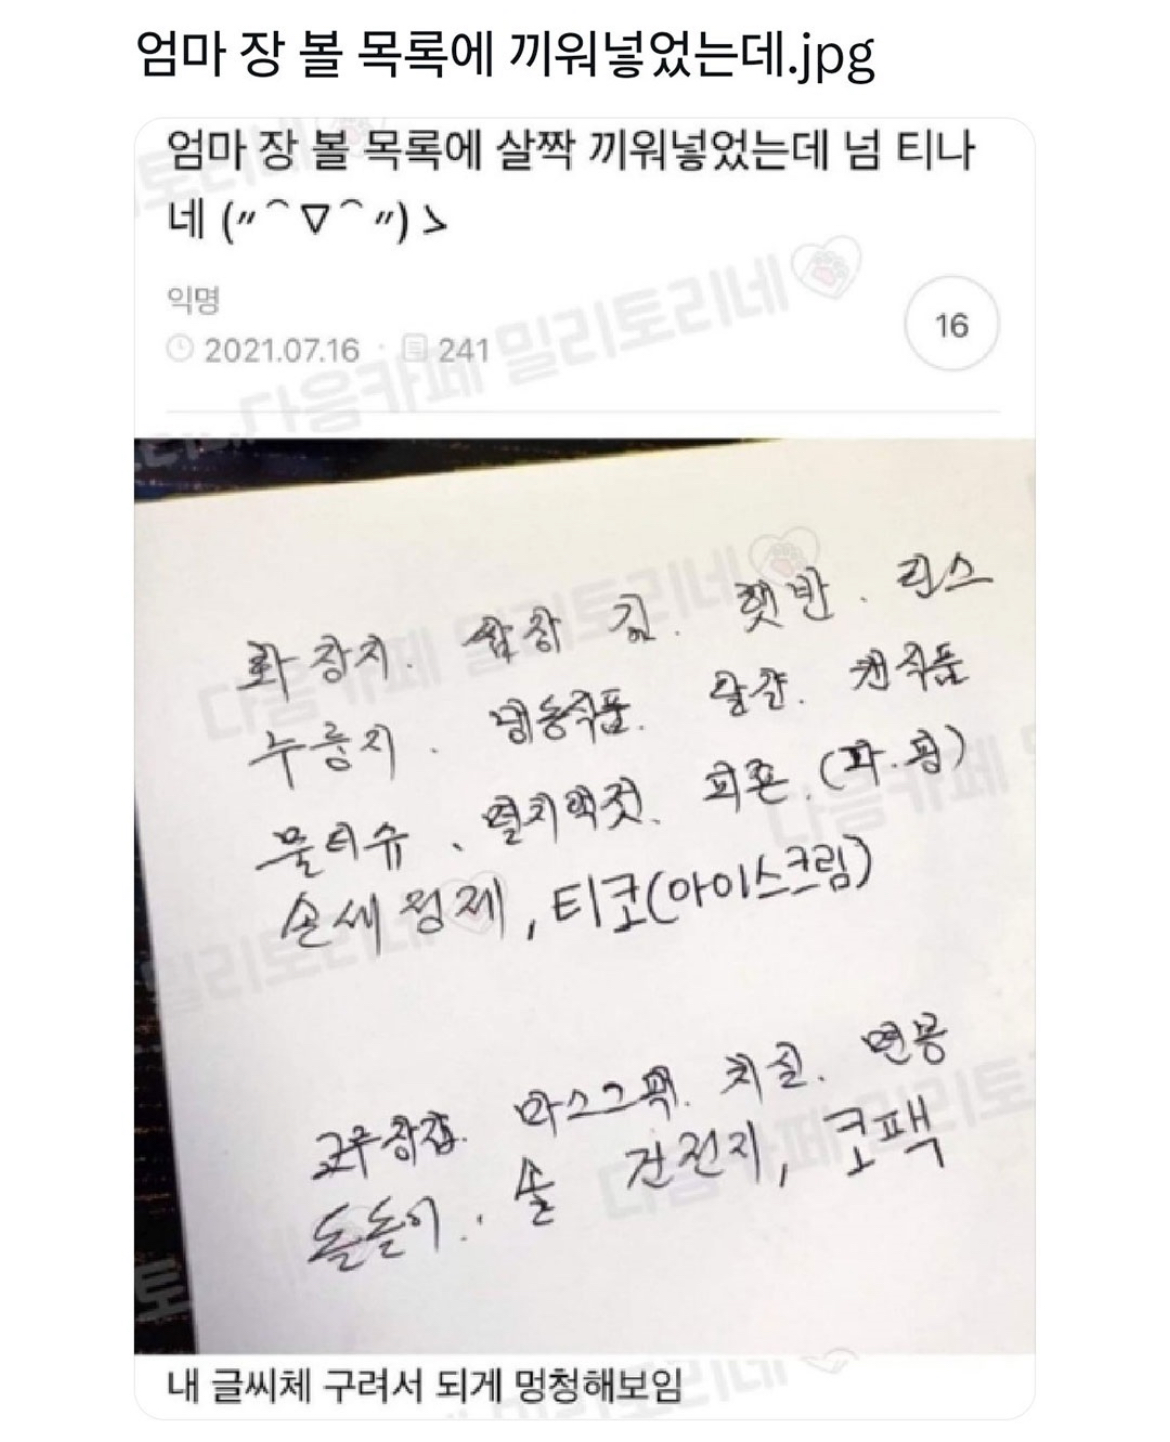 엄마 장 볼 목록에 끼워넣었는데.jpg
엄마 장 볼 목록에 살짝 끼워넣었는데 넘 티나
네 (〃⌒▽⌒〃)ゝ
익명
2021.07.16 · 241
16
다음카페 밀리토리네
화장지. 쌈장 김. 햇반. 린스
누룽지. 냉동식품. 달걀. 캔식품
물티슈. 멸치액젓. 피죤. (파.핑)
손세정제, 티코(아이스크림)
고무장갑. 마스크팩. 치실. 면봉
돌돌이. 솔 건전지, 코팩
내 글씨체 구려서 되게 멍청해보임